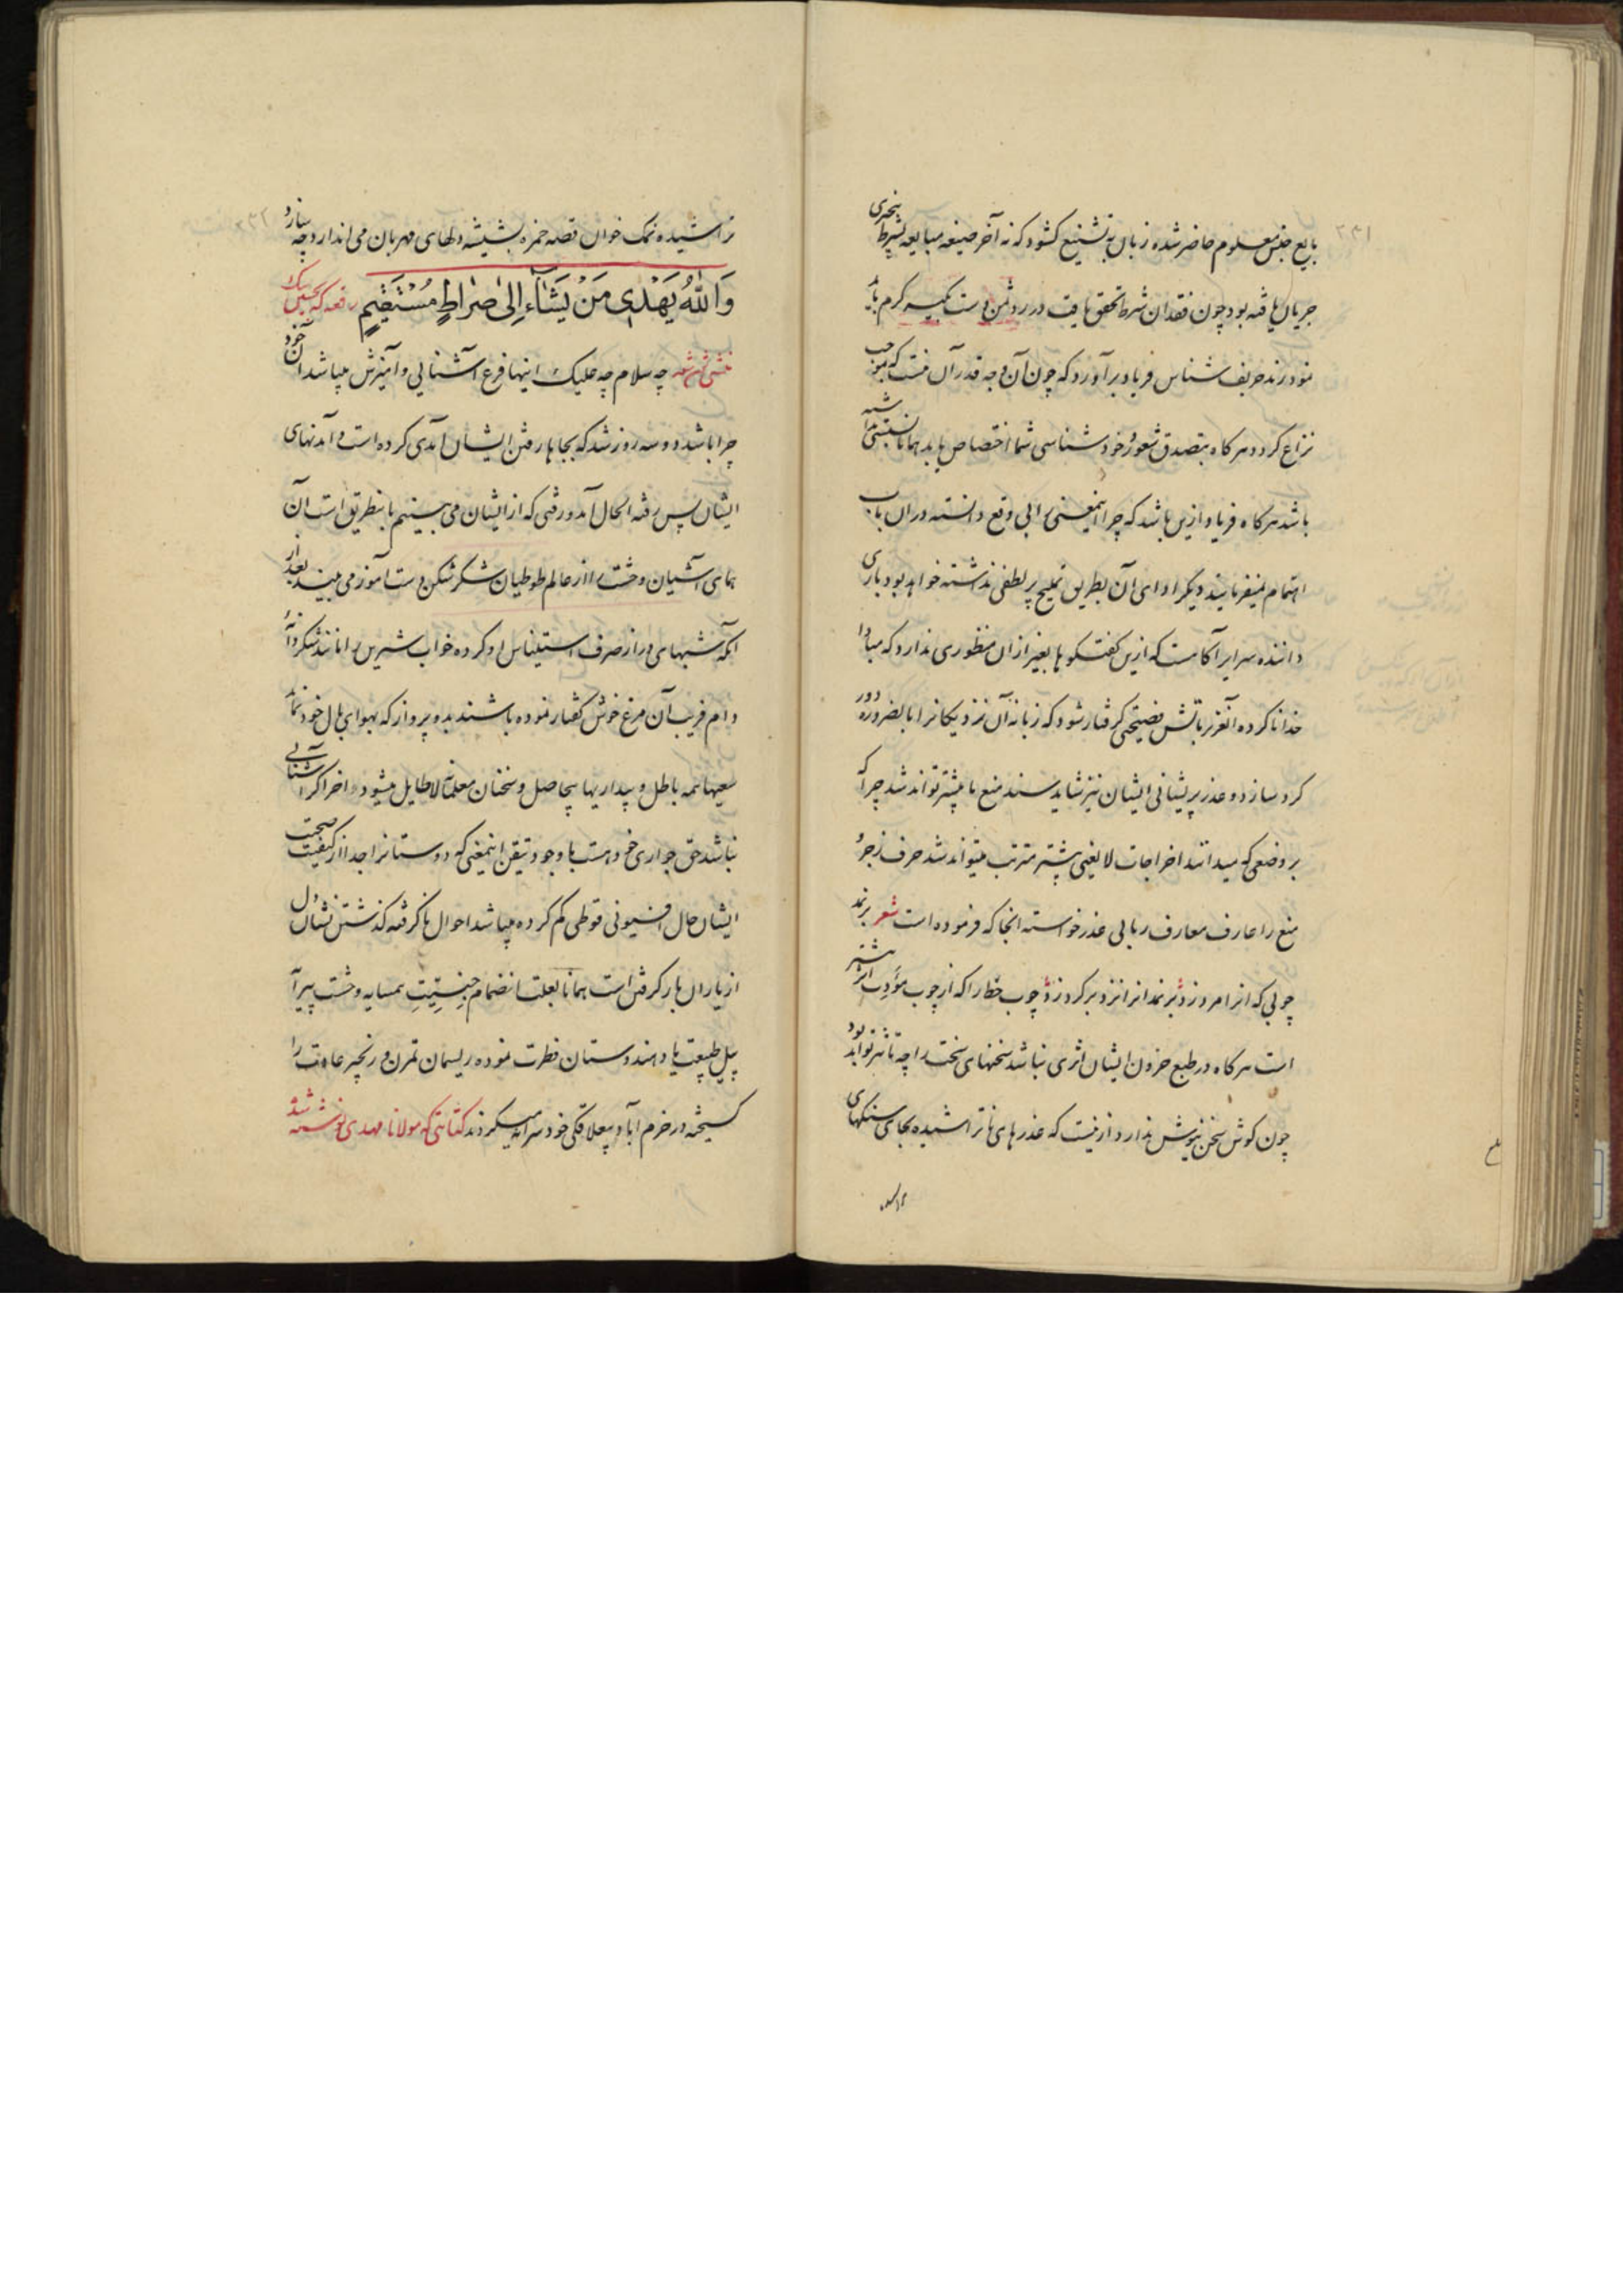 ۲۳۱
بایع جنس معلوم حاضر شده زبان به تشنیع کشود که نه آخر صیغه مبایعه بشرط
جریان یافته بود چون فقدان شرط تحقق یافت در رد ثمن دست بکیسه کرم باید
نمود رند حریف شناس فریاد برآورد که چون آن وجه قدر آن نیست که موجب
نزاع کردد هرکاه بتصدق شعور خود شناسی شما اختصاص یابد همانا
باشد هرکاه فریاد ازین باشد که چرا اینمعنی را بی وقع دانسته در ان باب
اهتمام نمیفرمایند دیگر ادای آن بطریق تملیح پر لطفی نداشته خواهد بود باری
داننده سرایر آکاهست که ازین کفتکوها بغیر ازان منظوری ندارد که مبادا
خدا ناکرده آنعزیز بآتش فضیحتی کرفتار شود که زبانه آن نزدیکانرا بالضروره دور
کرد سازد و عذر پریشانی ایشان نیز شاید سند منع ما بیشتر تواند شد چرا که
بر وضعی که میدانند اخراجات لایعنی بیشتر مترتب میتواند شد حرف زجر و
منع را عارف معارف ربانی عذر خواسته انجا که فرموده است شعر برنمد
چوبی که انرا مرد زد بر نمد انرا نزد بر کرد زد چوب خطا را که از چوب مؤدب
است هرکاه در طبع حزون ایشان اثری نباشد سخنهای سخت را چه تاثیر تواند بود
چون کوش سخن نیوش ندارد از نیست که عذرهای ناتراشیده بجای سنکهای
۲۳۲
تراشیده نمک خوان قصه حمزه بشیشه دلهای مهربان می اندازد چه سازد
وَاللّٰهُ يَهْدِى مَنْ يَشَآءُ اِلىٰ صِرَاطٍ مُسْتَقِيمٍ رقعه که بحسین بیک
منشی نوشته چه سلام چه علیک اینها فرع آشنایی و آمیزش میباشد آن خود
چرا باشد دو سه روز شد که بجا یا رفتن ایشان آمدی کرده است و آمدنهای
ایشان پس رفته الحال آمد و رفتی که از ایشان می بینیم باینطریق است آن
همای آشیان وحشت را از عالم طوطیان شکر شکن دست آموز می بیند بعد از
انکه شبهای دراز صرف استیناس او کرده خواب شیرین را مانند شکر دانهٔ
دام فریب آن مرغ خوش کفتار نموده باشند بدو پرواز که بهوای بال خود نماید
سعیها همه باطل و بیداریها بیحاصل و سخنان معلمانه لاطایل میشود اخر اکر آشنایی
نباشد حق جواری خود هست با وجود تیقن اینمعنی که دوستانرا جدا از کیفیت صحبت
ایشان حال افیونی قوطی کم کرده میباشد احوال ناکرفته کذشتن نشان دل
از یاران بار کرفتن است همانا بعلت انضمام جنسیت همسایه وحشت پیرا
پیل طبیعت یاد هندوستان فطرت نموده ریسمان تمرن و زنجیر عادت را
کسیخته در خرم آباد بیعلاقکی خودسرانه میکردند کتابتی که بمولانا مهدی نوشته شد